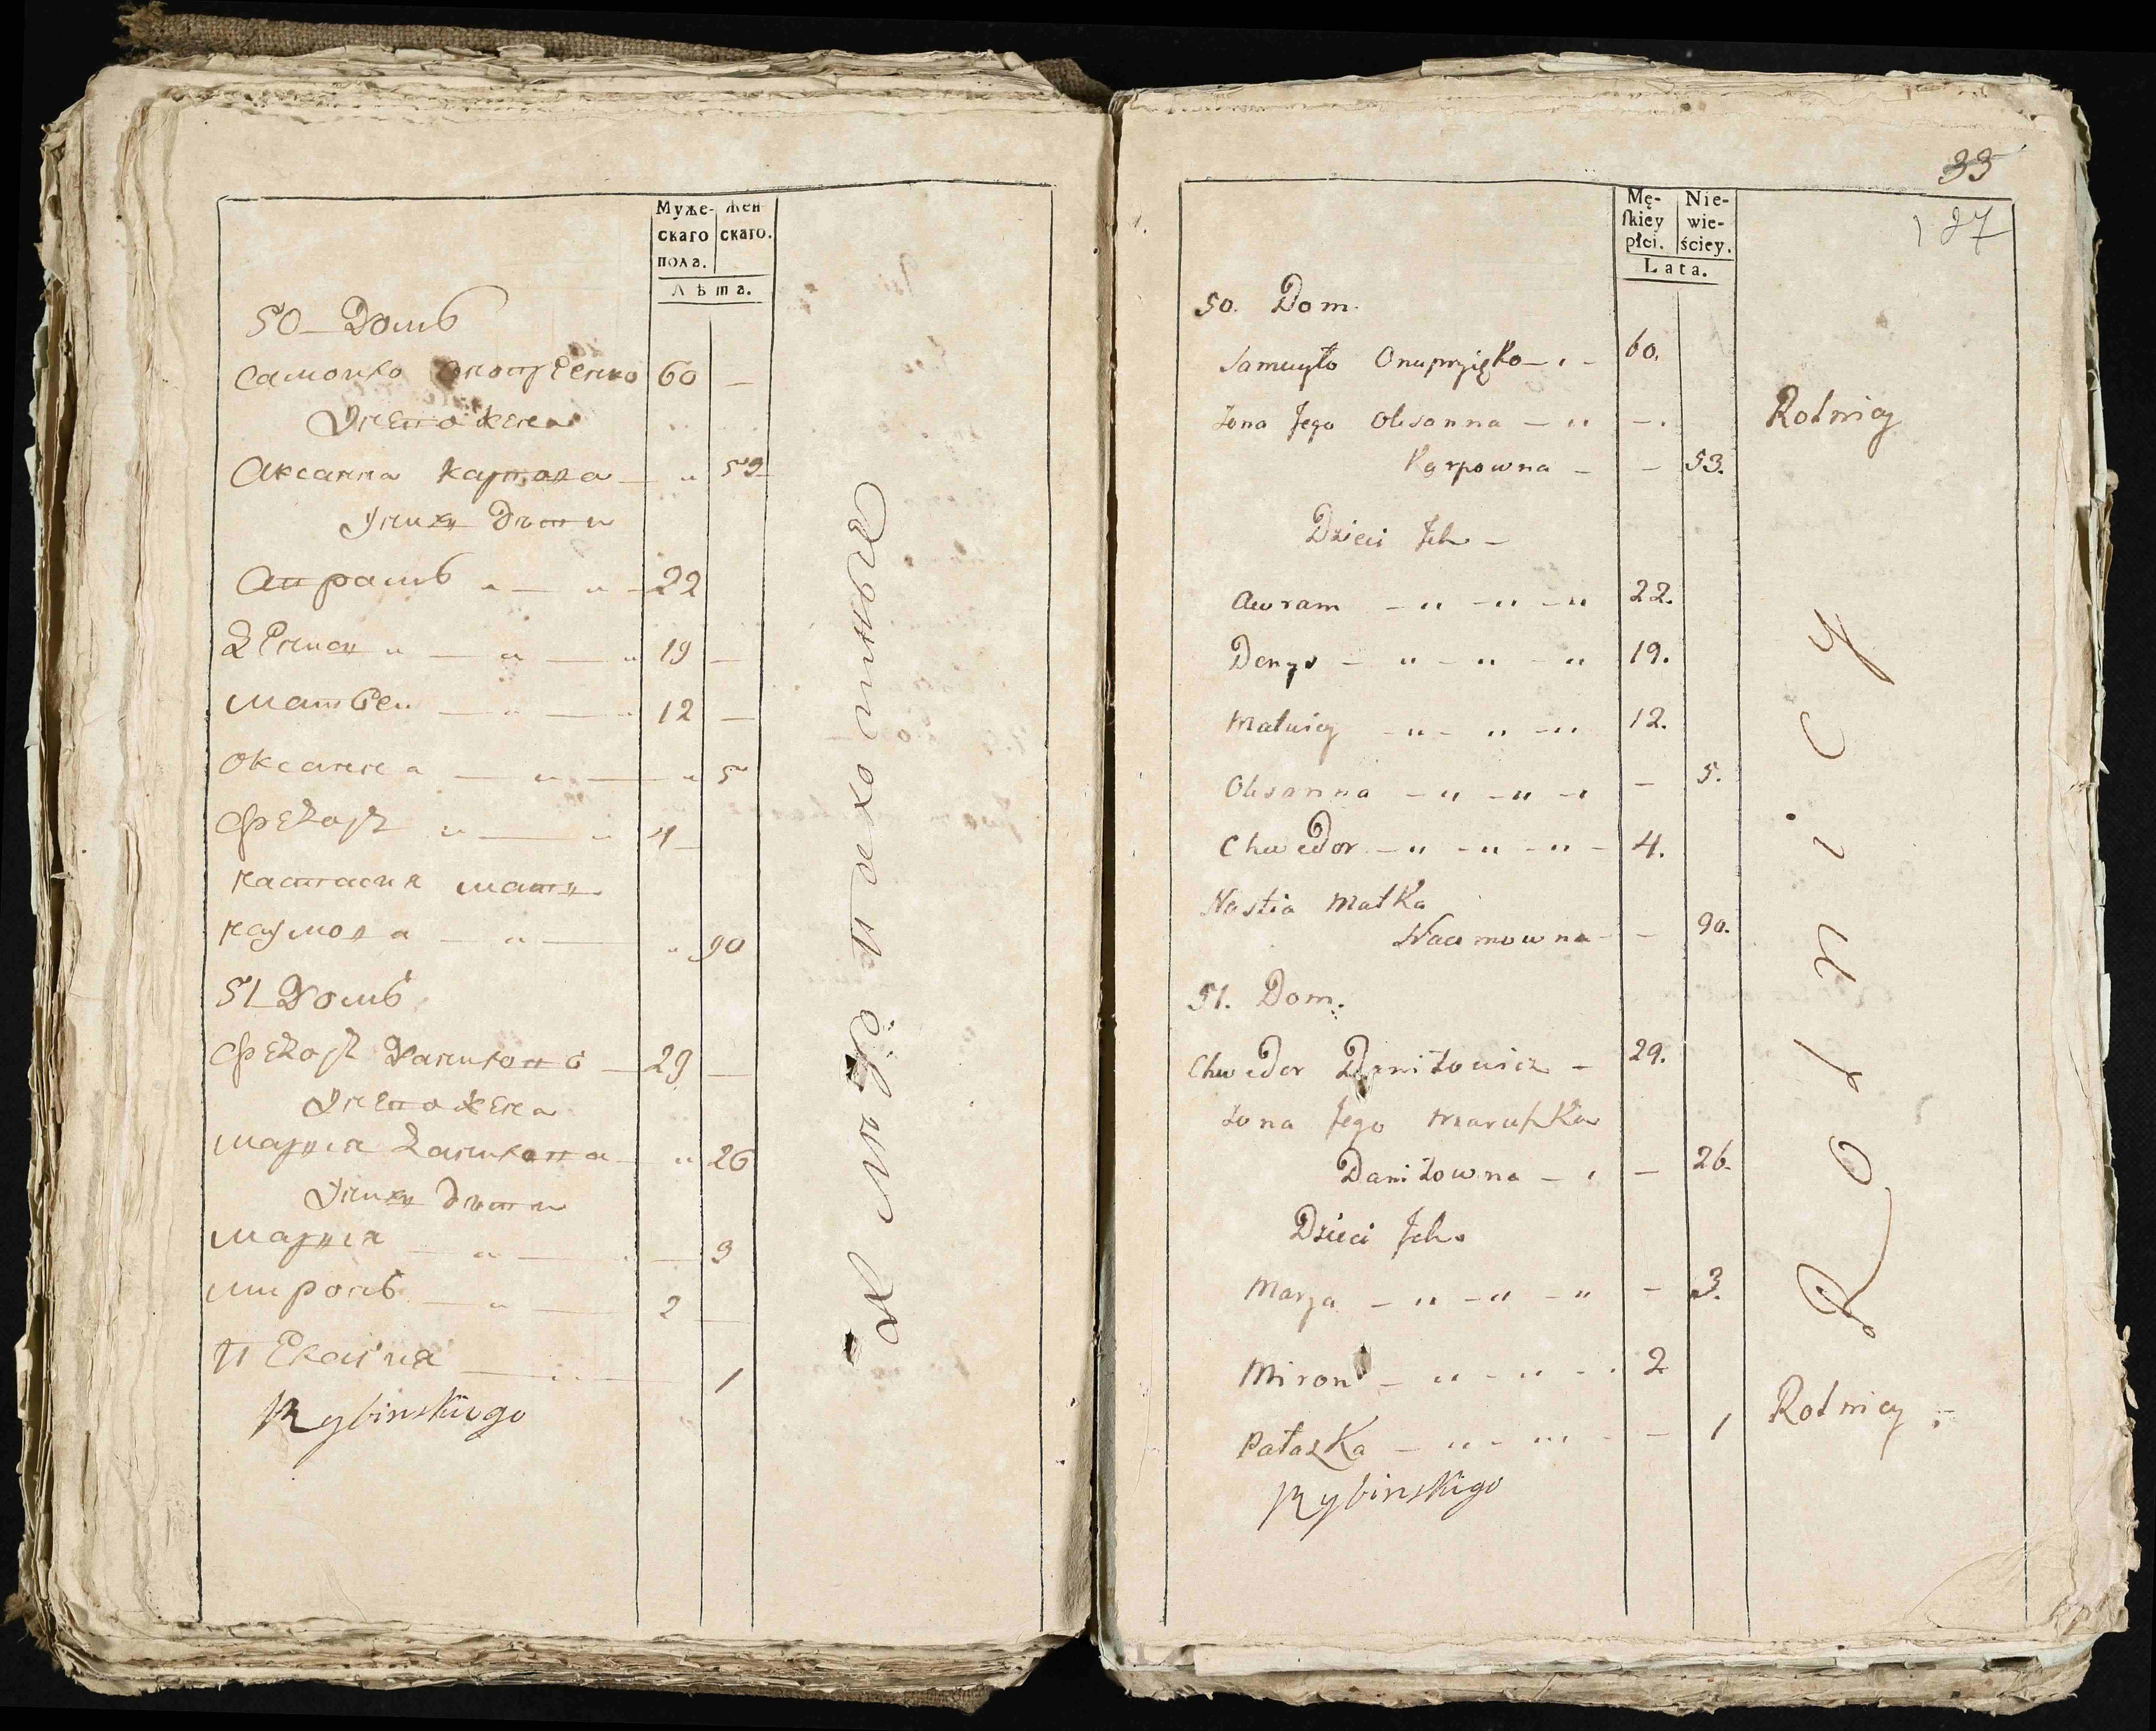 Муже-
скаго
пола.
Жен
скаго.
Лѣта.
50 Домъ
Самойло 60 —
Жена
Аксанна Карпова — „ 59
Дѣти
Аврамъ „ — „ — 22
Денис „ — „ — „ 19 —
Матвей — „ — „ 12 —
Оксанна — „ — „ 5
Федоръ „ — „ 4 —
Настасия мать
Наумова — „ — „ 90
51 Домъ
Федоръ Даниловъ — 29 —
Жена
Мария Данилова „ 26
Дѣти
Мария — „ — 3
Миронъ — „ — 2 —
Пелагия — „ — 1
Rybinskiego
33
127
Mę-
ſkiey
płci.
Nie-
wie-
ściey.
Lata.
50. Dom.
Samuyło Onupryięko — „ — 60.
Rolnicy
żona Jego Olesanna — „ — .
Karpowna — — 53.
Dzieci Jch —
Awram — „ — „ — „ 22.
Denys — „ — „ — „ 19.
Matwiey — „ — „ — „ 12.
Olesanna — „ — „ — „ — 5.
Chwedor — „ — „ — „ — 4.
Nastia Matka
Naumowna — — 90.
51. Dom.
Chwedor Daniłowicz — 29.
żona Jego Maruſzka
Daniłowna — „ — 26.
Dzieci Jch.
Marya — „ — „ — „ — 3.
Miron — „ — „ — . 2
Pałazka — „ — „ — — 1
Rolnicy
Rolnicy
Rybinskigo